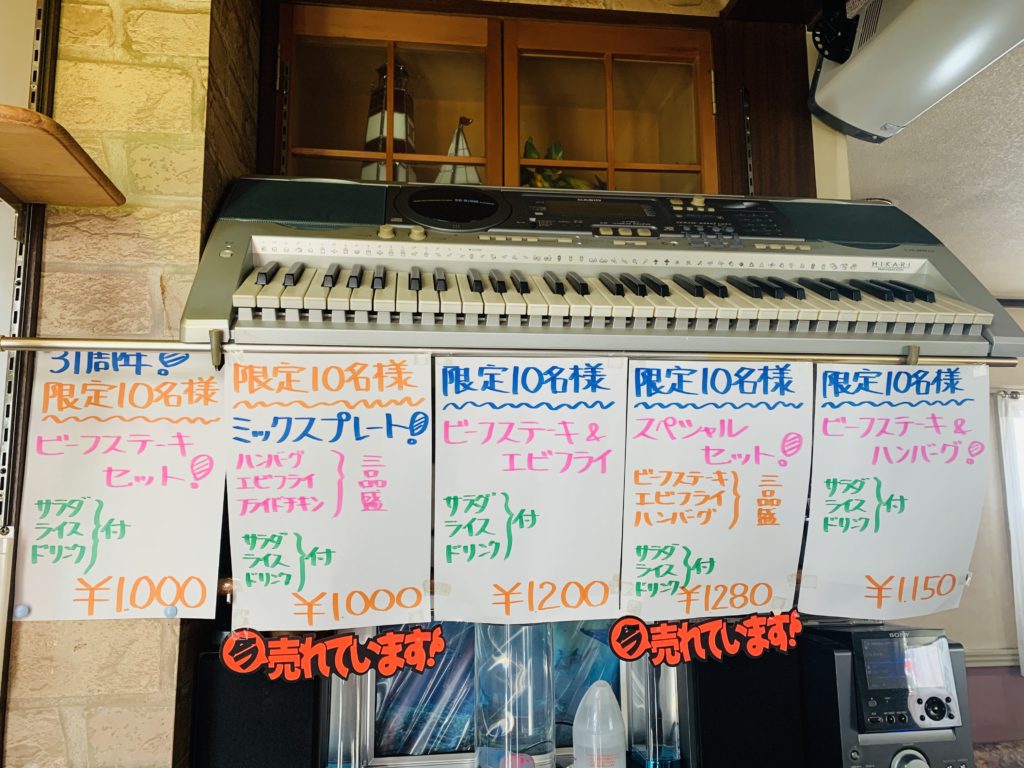 CASIO
HIKARI
NAVIGATION
31周年!
限定10名様
ビーフステーキ
セット!
サラダ
ライス
ドリンク
付
¥1.000
限定10名様
ミックスプレート!
ハンバーグ
エビフライ
フライドチキン
三品盛
サラダ
ライス
ドリンク
付
¥1.000
売れています!
限定10名様
ビーフステーキ&
エビフライ
サラダ
ライス
ドリンク
付
¥1200
限定10名様
スペシャル
セット!
ビーフステーキ
エビフライ
ハンバーグ
三品盛
サラダ
ライス
ドリンク
付
¥1280
売れています!
限定10名様
ビーフステーキ&
ハンバーグ!
サラダ
ライス
ドリンク
付
¥1.150
SONY